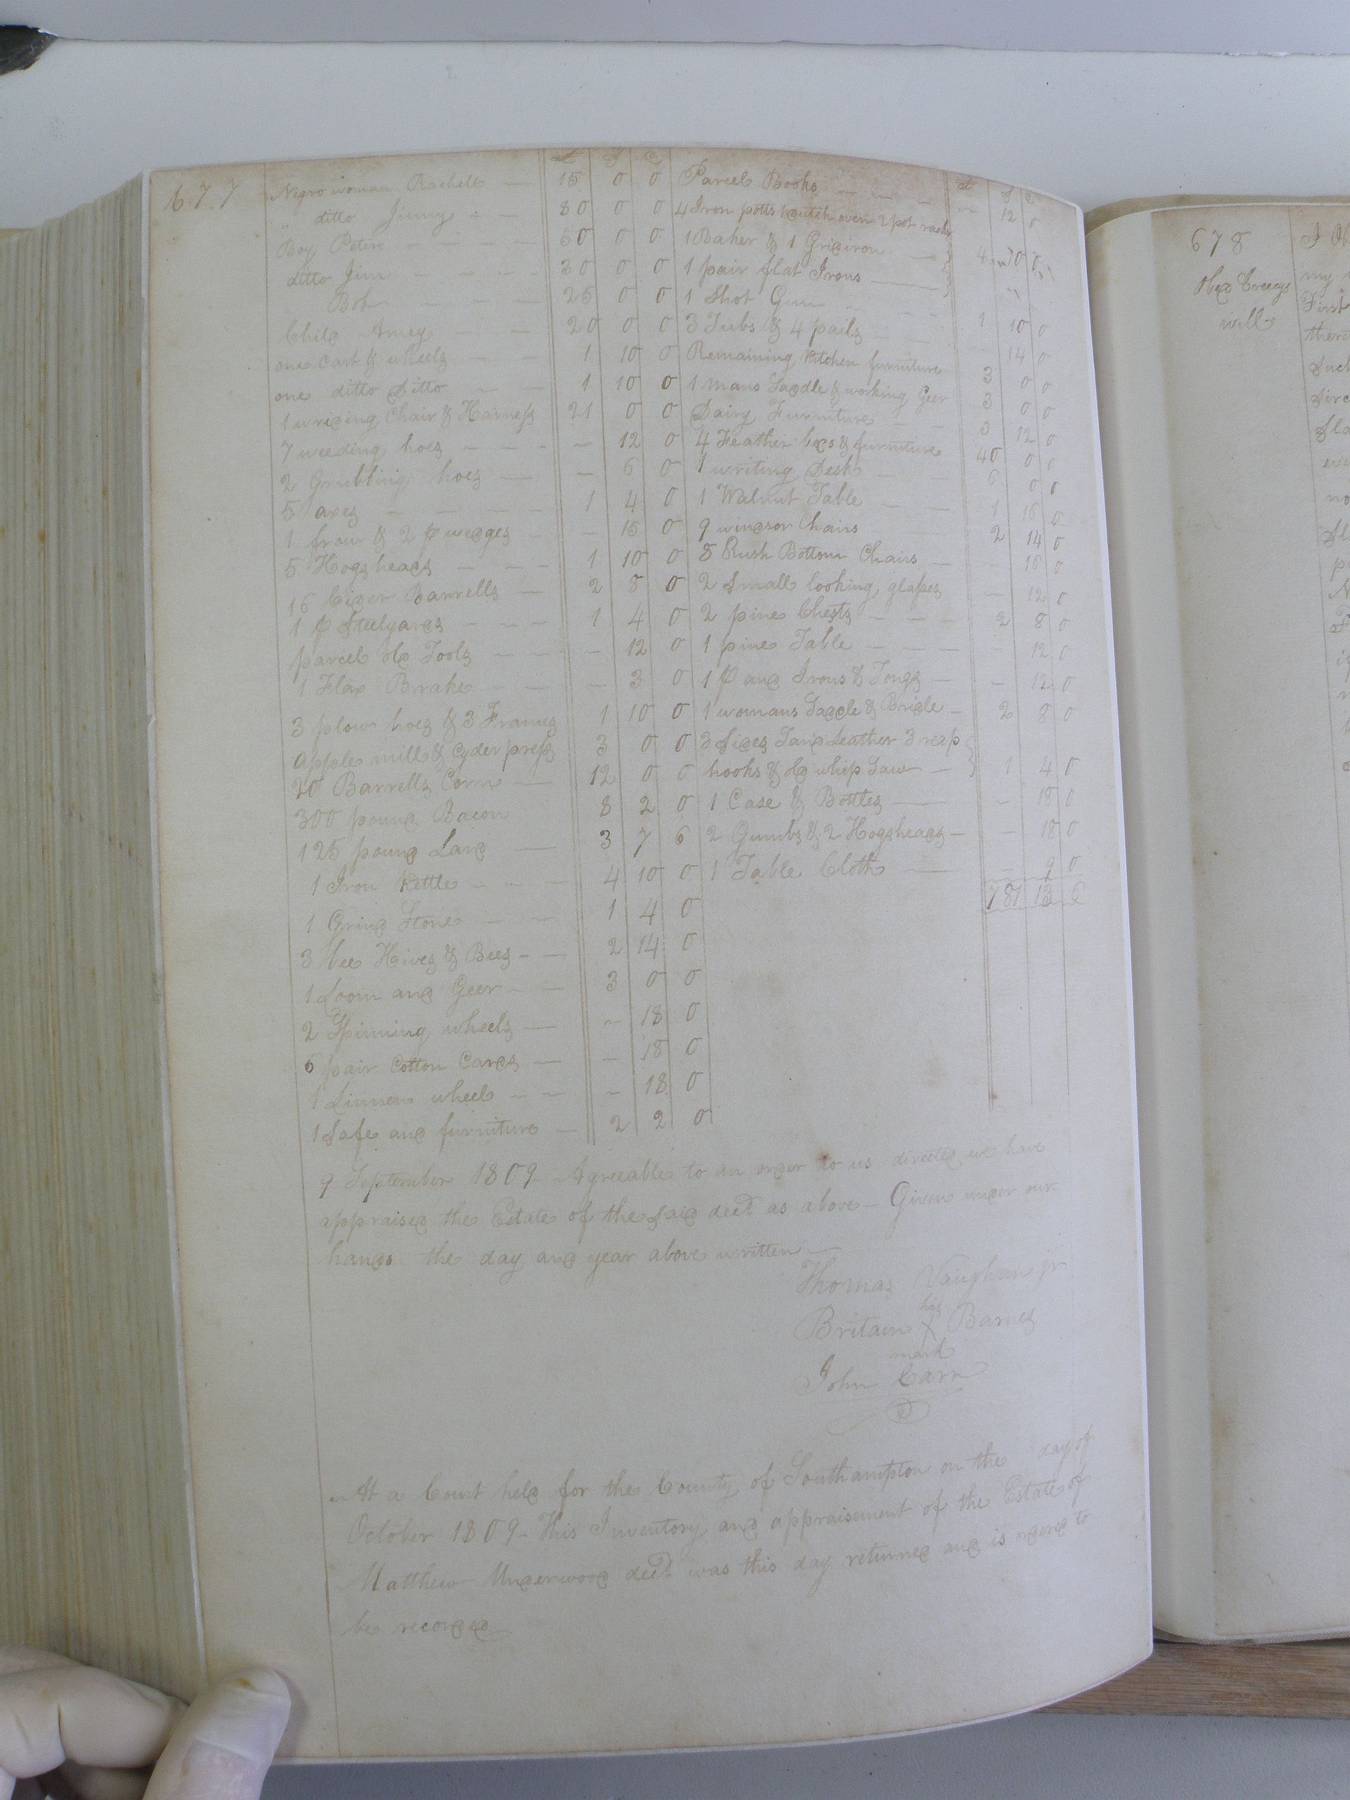 677
£ S D
Negro woman Rachell — 15 0 0
ditto Jinny — 80 0 0
Boy Peter — 60 0 0
ditto Jim — 30 0 0
Bob — 25 0 0
Child Amey — 20 0 0
one Cart & wheels — 1 10 0
one ditto Ditto — 1 10 0
1 wriding Chair & Harness 21 0 0
7 weeding hoes — 12 0
2 Grubbling hoes — 6 0
5 axes — 1 4 0
1 fraw & 2 p wedges — 15 0
5 Hogsheads — 1 10 0
16 Cider Barrells — 2 8 0
1 p Steelyards — 1 4 0
parcel old Tools — 12 0
1 Flax Brake — 3 0
3 plow hoes & 3 Frames 1 10 0
Apple mill & Cyder press 3 0 0
20 Barrells Corn — 12 0 0
300 pound Bacon 8 2 0
125 pound Lard — 3 7 6
1 Iron Kettle — 4 10 0
1 Grind Stone — 1 4 0
3 bee Haives & Bees — 2 14 0
1 Loom and Geer — 3 0 0
2 Spinning wheels — 18 0
6 pair Cotton Cards — 18 0
1 Linnen wheel — 18 0
1 Safe and furniture — 2 2 0
£ S D
Parcel Books — 12 0
4 Iron potts 1 dutch oven 2 pot racks
1 Baker & 1 Gridiron — 4 10 0
1 pair flat Irons —
1 Shot Gun — 1 10 0
3 Tubs & 4 pails — 14 0
Remaining Kitchen furniture 3 0 0
1 mans Saddle & working Geer 3 0 0
Dairy Furniture — 3 12 0
4 Feather beds & furniture 40 0 0
1 writing Desk — 6 0 0
1 Walnut Table — 1 16 0
9 windsor Chairs 2 14 0
8 Rush Bottom Chairs — 16 0
2 Small looking glasses — 12 0
2 pine Chests — 2 8 0
1 pine Table — 12 0
1 p and Irons & Tongs — 12 0
1 womans Saddle & Bridle — 2 8 0
3 Sides Tan'd Leather 3 reap
hooks & old whip Saw — 1 4 0
1 Case & Bottles — 18 0
2 Gumbs & 2 Hogsheads — 18 0
1 Table Cloth — 9 0
781 13 6
9 September 1809 Agreeable to an order to us directed we have
appraised the Estate of the said decd as above — Given under our
hands the day and year above written —
Thomas Vaughan jr
his
Britain X Barnes
mark
John Carr
At a Court held for the County of Southampton on the day of
October 1809 — This Inventory and appraisement of the Estate of
Matthew Underwood decd was this day returned and is ordered to
be recorded
678
will
I
my
First